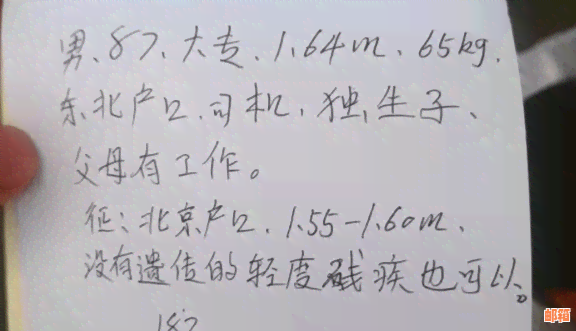 男、87、大专、1.64m、65kg、
东北户口、司机、独生子、
父母有工作。
征:北京户口、1.55-1.60m、
没有遗传的轻度残疾也可以。
187
邮箱